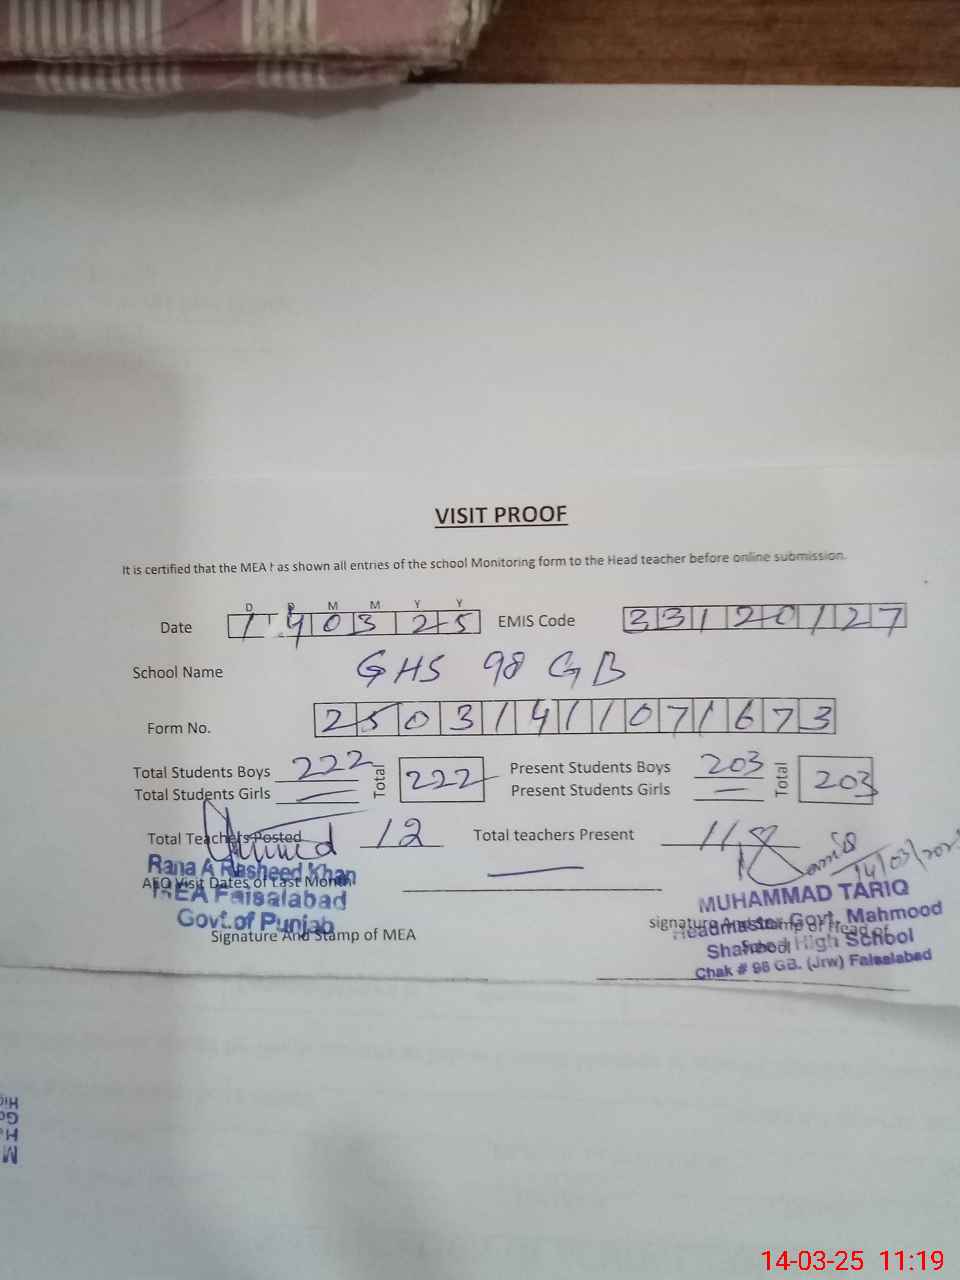 VISIT PROOF
It is certified that the MEA has shown all entries of the school Monitoring form to the Head teacher before online submission.
D D M M Y Y
Date 1 4 0 3 2 5 EMIS Code 3 3 1 2 0 1 2 7
School Name GHS 98 GB
Form No. 2 5 0 3 1 4 1 1 0 7 1 6 7 3
Total Students Boys 222 Total 222 Present Students Boys 203 Total 203
Total Students Girls — Present Students Girls —
Total Teachers Posted 12 Total teachers Present 11
14/03/2025
Rana A Rasheed Khan
AEO Visit Dates of Last Month —
MEA Faisalabad
Govt. of Punjab
Signature And Stamp of MEA
MUHAMMAD TARIQ
signature And Stamp of Head of
School
Headmaster Govt. Mahmood
High School
Chak # 98 GB. (Jrw) Faisalabad
14-03-25 11:19